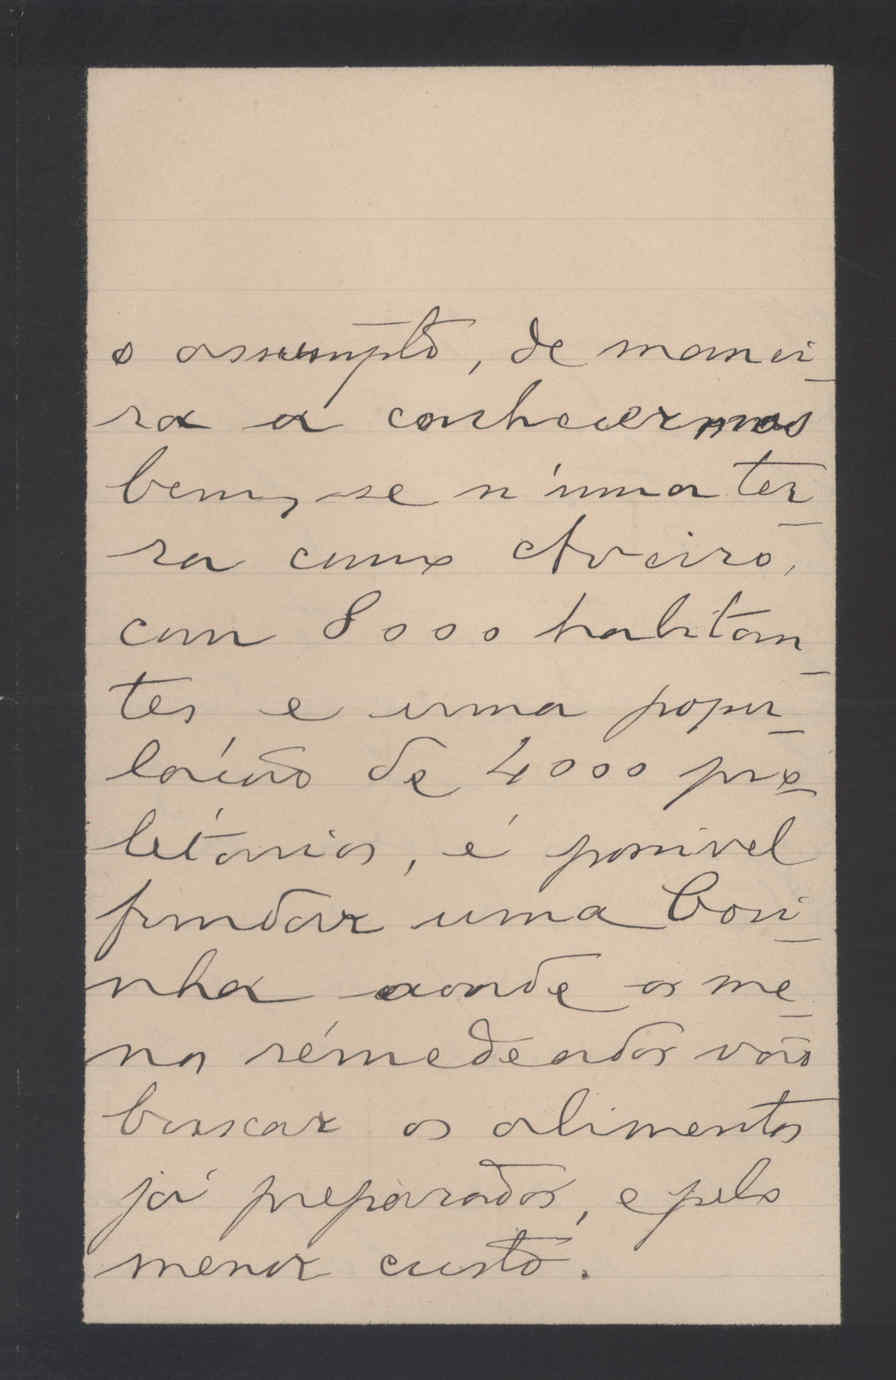 o assumpto, de manei-
ra a conhecermos
bem, se n'uma ter-
ra como Aveiro,
com 8000 habitan-
tes e uma popu-
lação de 4000 pro-
letários, é possivel
fundar uma Cosi-
nha aonde os me-
nos rémedeados vão
buscar os alimentos
já preparados, e pelo
menor custo.